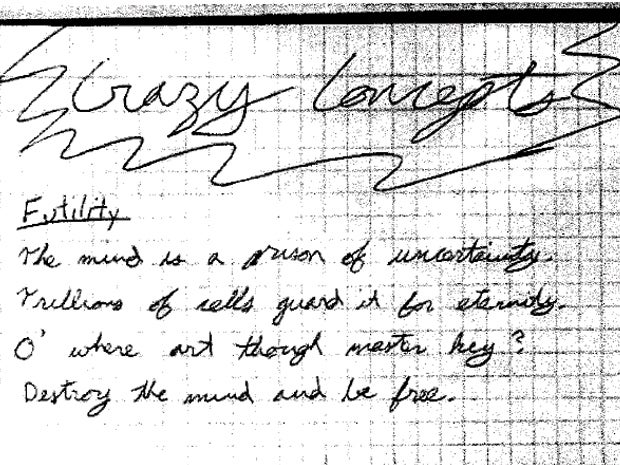 Crazy Concepts
Futility
The mind is a prison of uncertainty.
Trillions of cells guard it for eternity.
O' where art though master key?
Destroy the mind and be free.